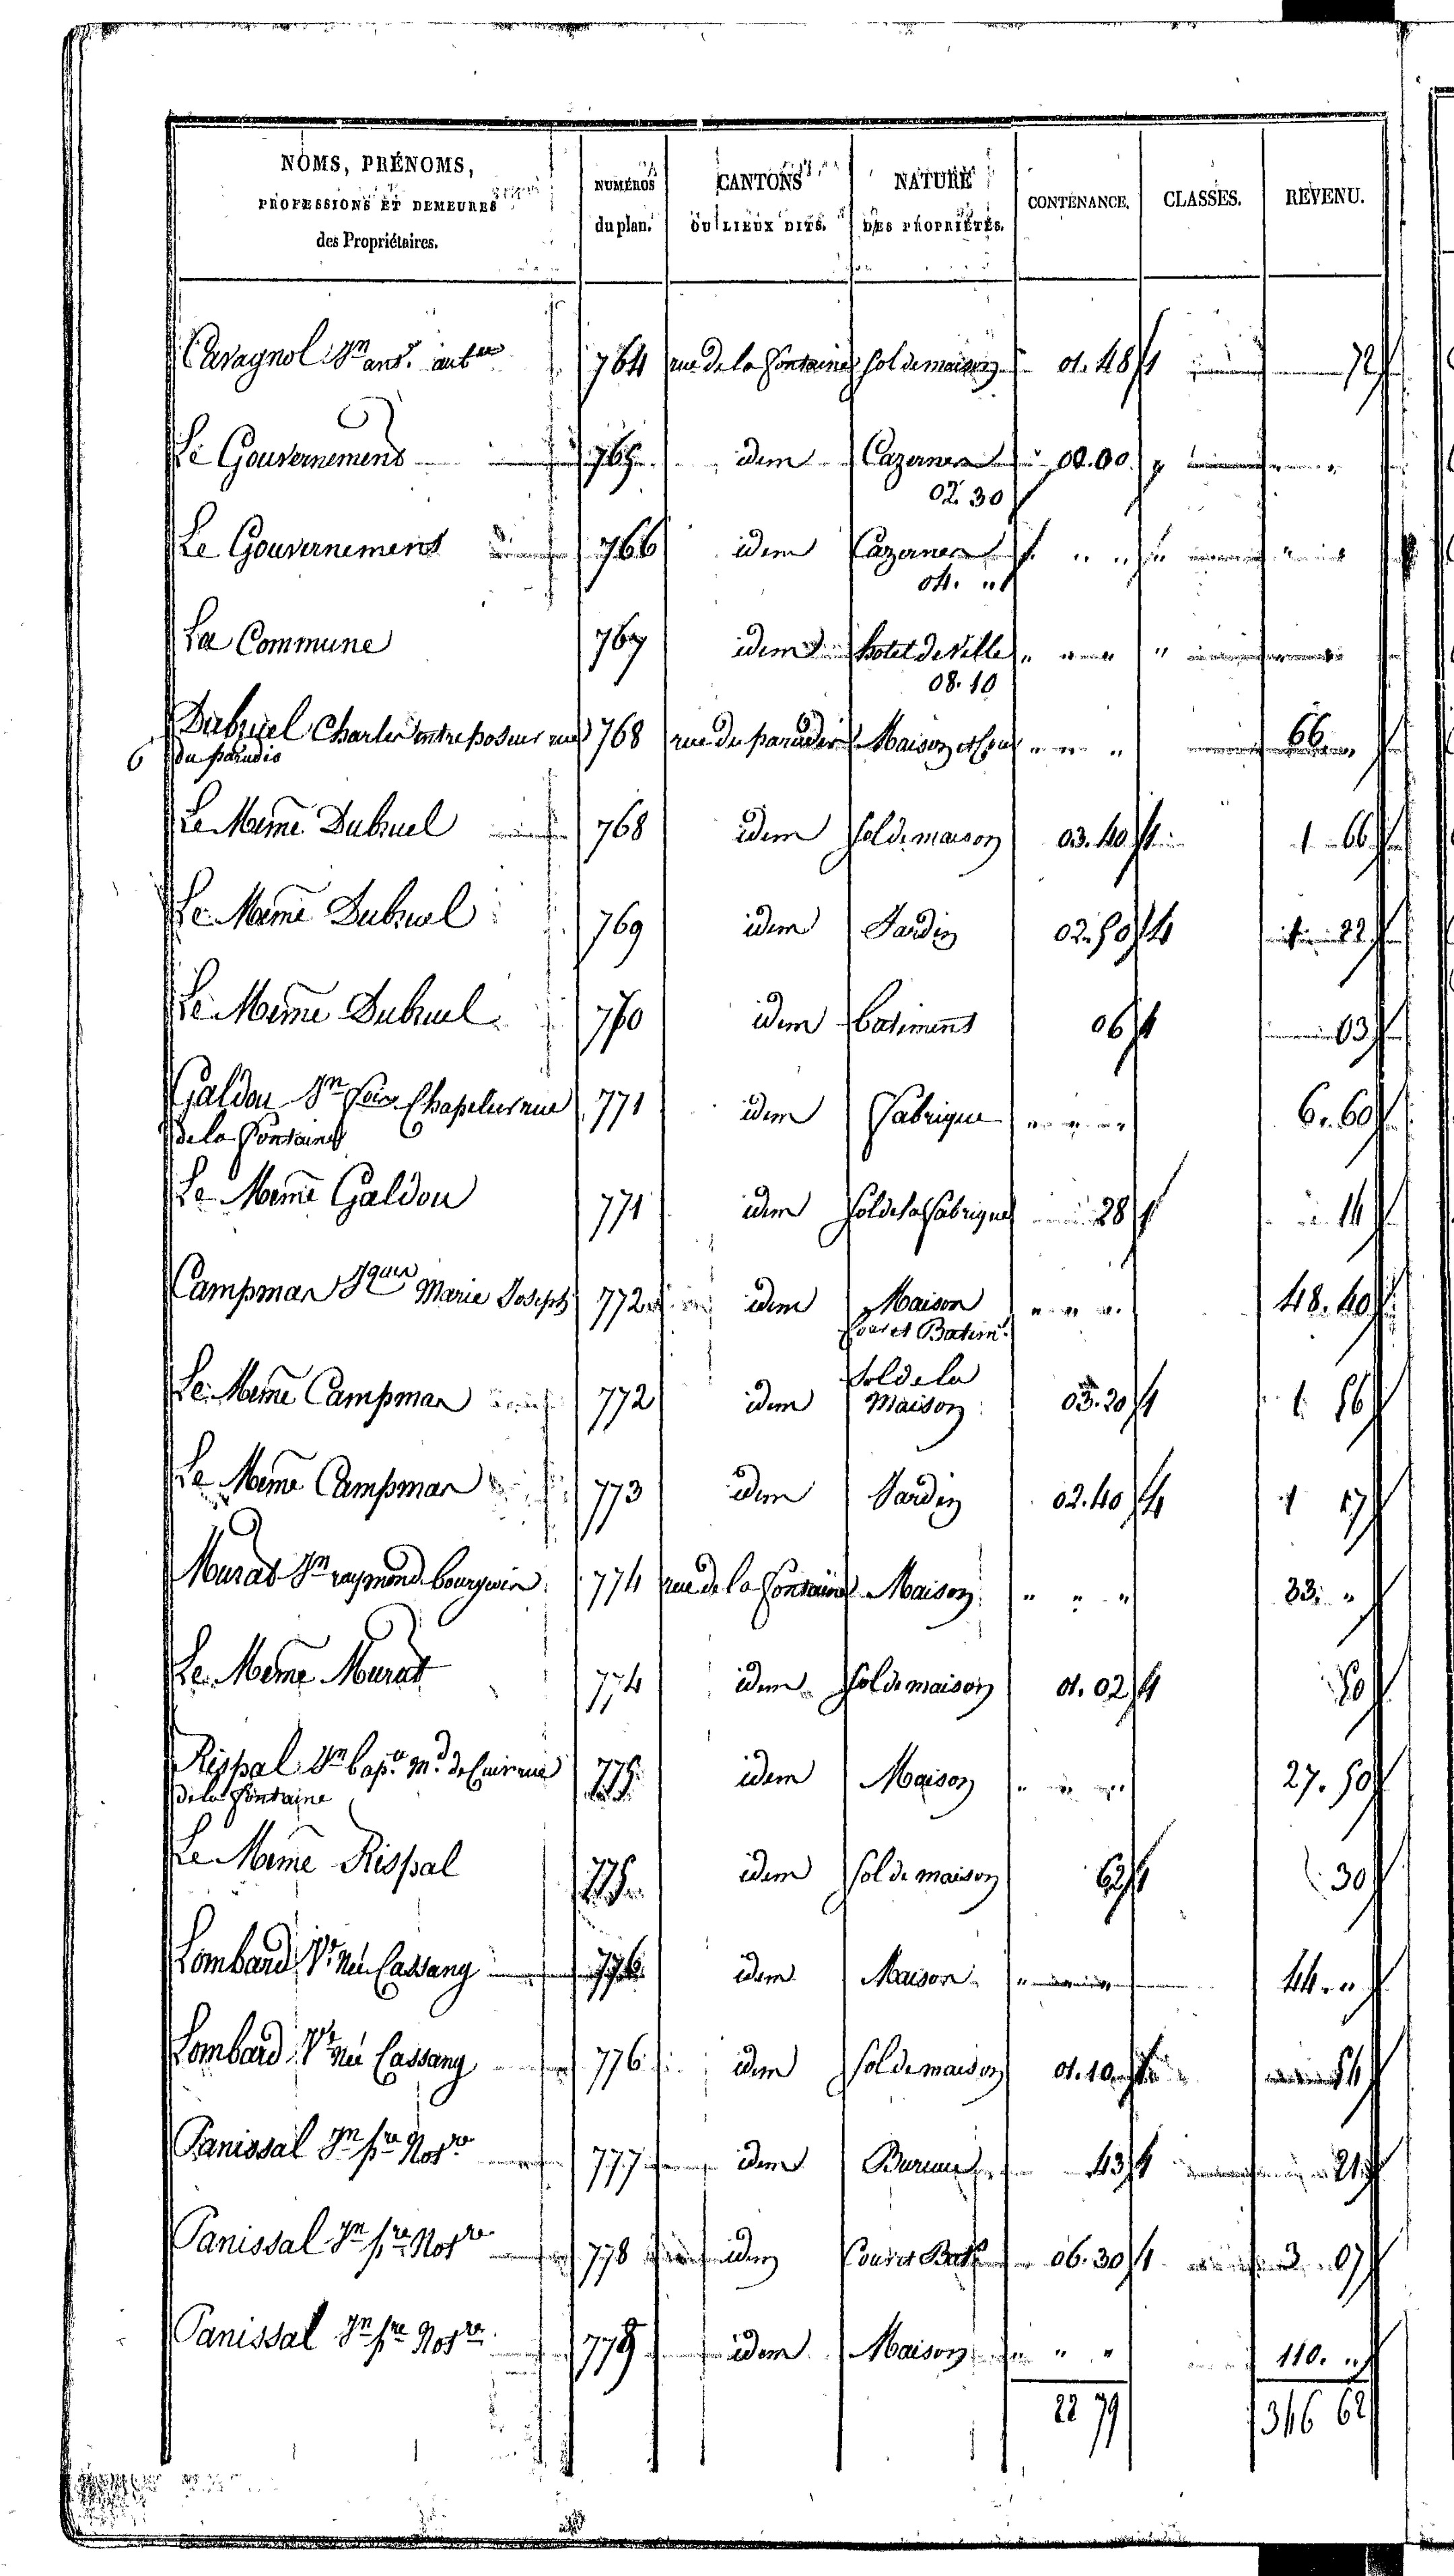 NOMS, PRÉNOMS, PROFESSIONS ET DEMEURES des Propriétaires. NUMÉROS du plan. CANTONS OU LIEUX DITS. NATURE DES PROPRIÉTÉS. CONTENANCE. CLASSES. REVENU.
Cavagnol Jn ant. 764 rue de la fontaine sol de maison 01.48 1 72
Le Gouvernement 765 idem Cazernes 00.00 " "
02.30
Le Gouvernement 766 idem Cazernes " " " "
04. "
La Commune 767 idem hotel de Ville " " " "
08.10
Dubruel Charles entreposeur rue 768 rue du paradis Maison et Cour " " " 66 "
6 du paradis
Le Meme Dubruel 768 idem sol de maison 03.40 1 1 66
Le Meme Dubruel 769 idem Jardin 02.50 4 1 22
Le Meme Dubruel 770 idem batiment 06 1 03
Galdou Jn Chapelier rue 771 idem fabrique " " " 6.60
de la fontaine
Le Meme Galdou 771 idem sol de la fabrique 28 1 14
Campmas Jques Marie Joseph 772 idem Maison " " " 48.40
Cour et Batimt
Le Meme Campmas 772 idem sol de la Maison 03.20 1 1 56
Le Meme Campmas 773 idem Jardin 02.40 4 1 17
Murat Jn raymond bourgeois 774 rue de la fontaine Maison " " " 33 "
Le Meme Murat 774 idem sol de maison 01.02 1 50
Rispal Jn bapte Md de Cuir rue 775 idem Maison " " " 27.50
de la fontaine
Le Meme Rispal 775 idem sol de maison 62 1 30
Lombard Ve née Cassang 776 idem Maison " " 44. "
Lombard Ve née Cassang 776 idem sol de maison 01.10 1 54
Panissal Jn pre Notre 777 idem Bureau 43 1 21
Panissal Jn pre Notre 778 idem Cour et Batt 06.30 1 3 07
Panissal Jn pre Notre 779 idem Maison " " " 110. "
22 79 346 62